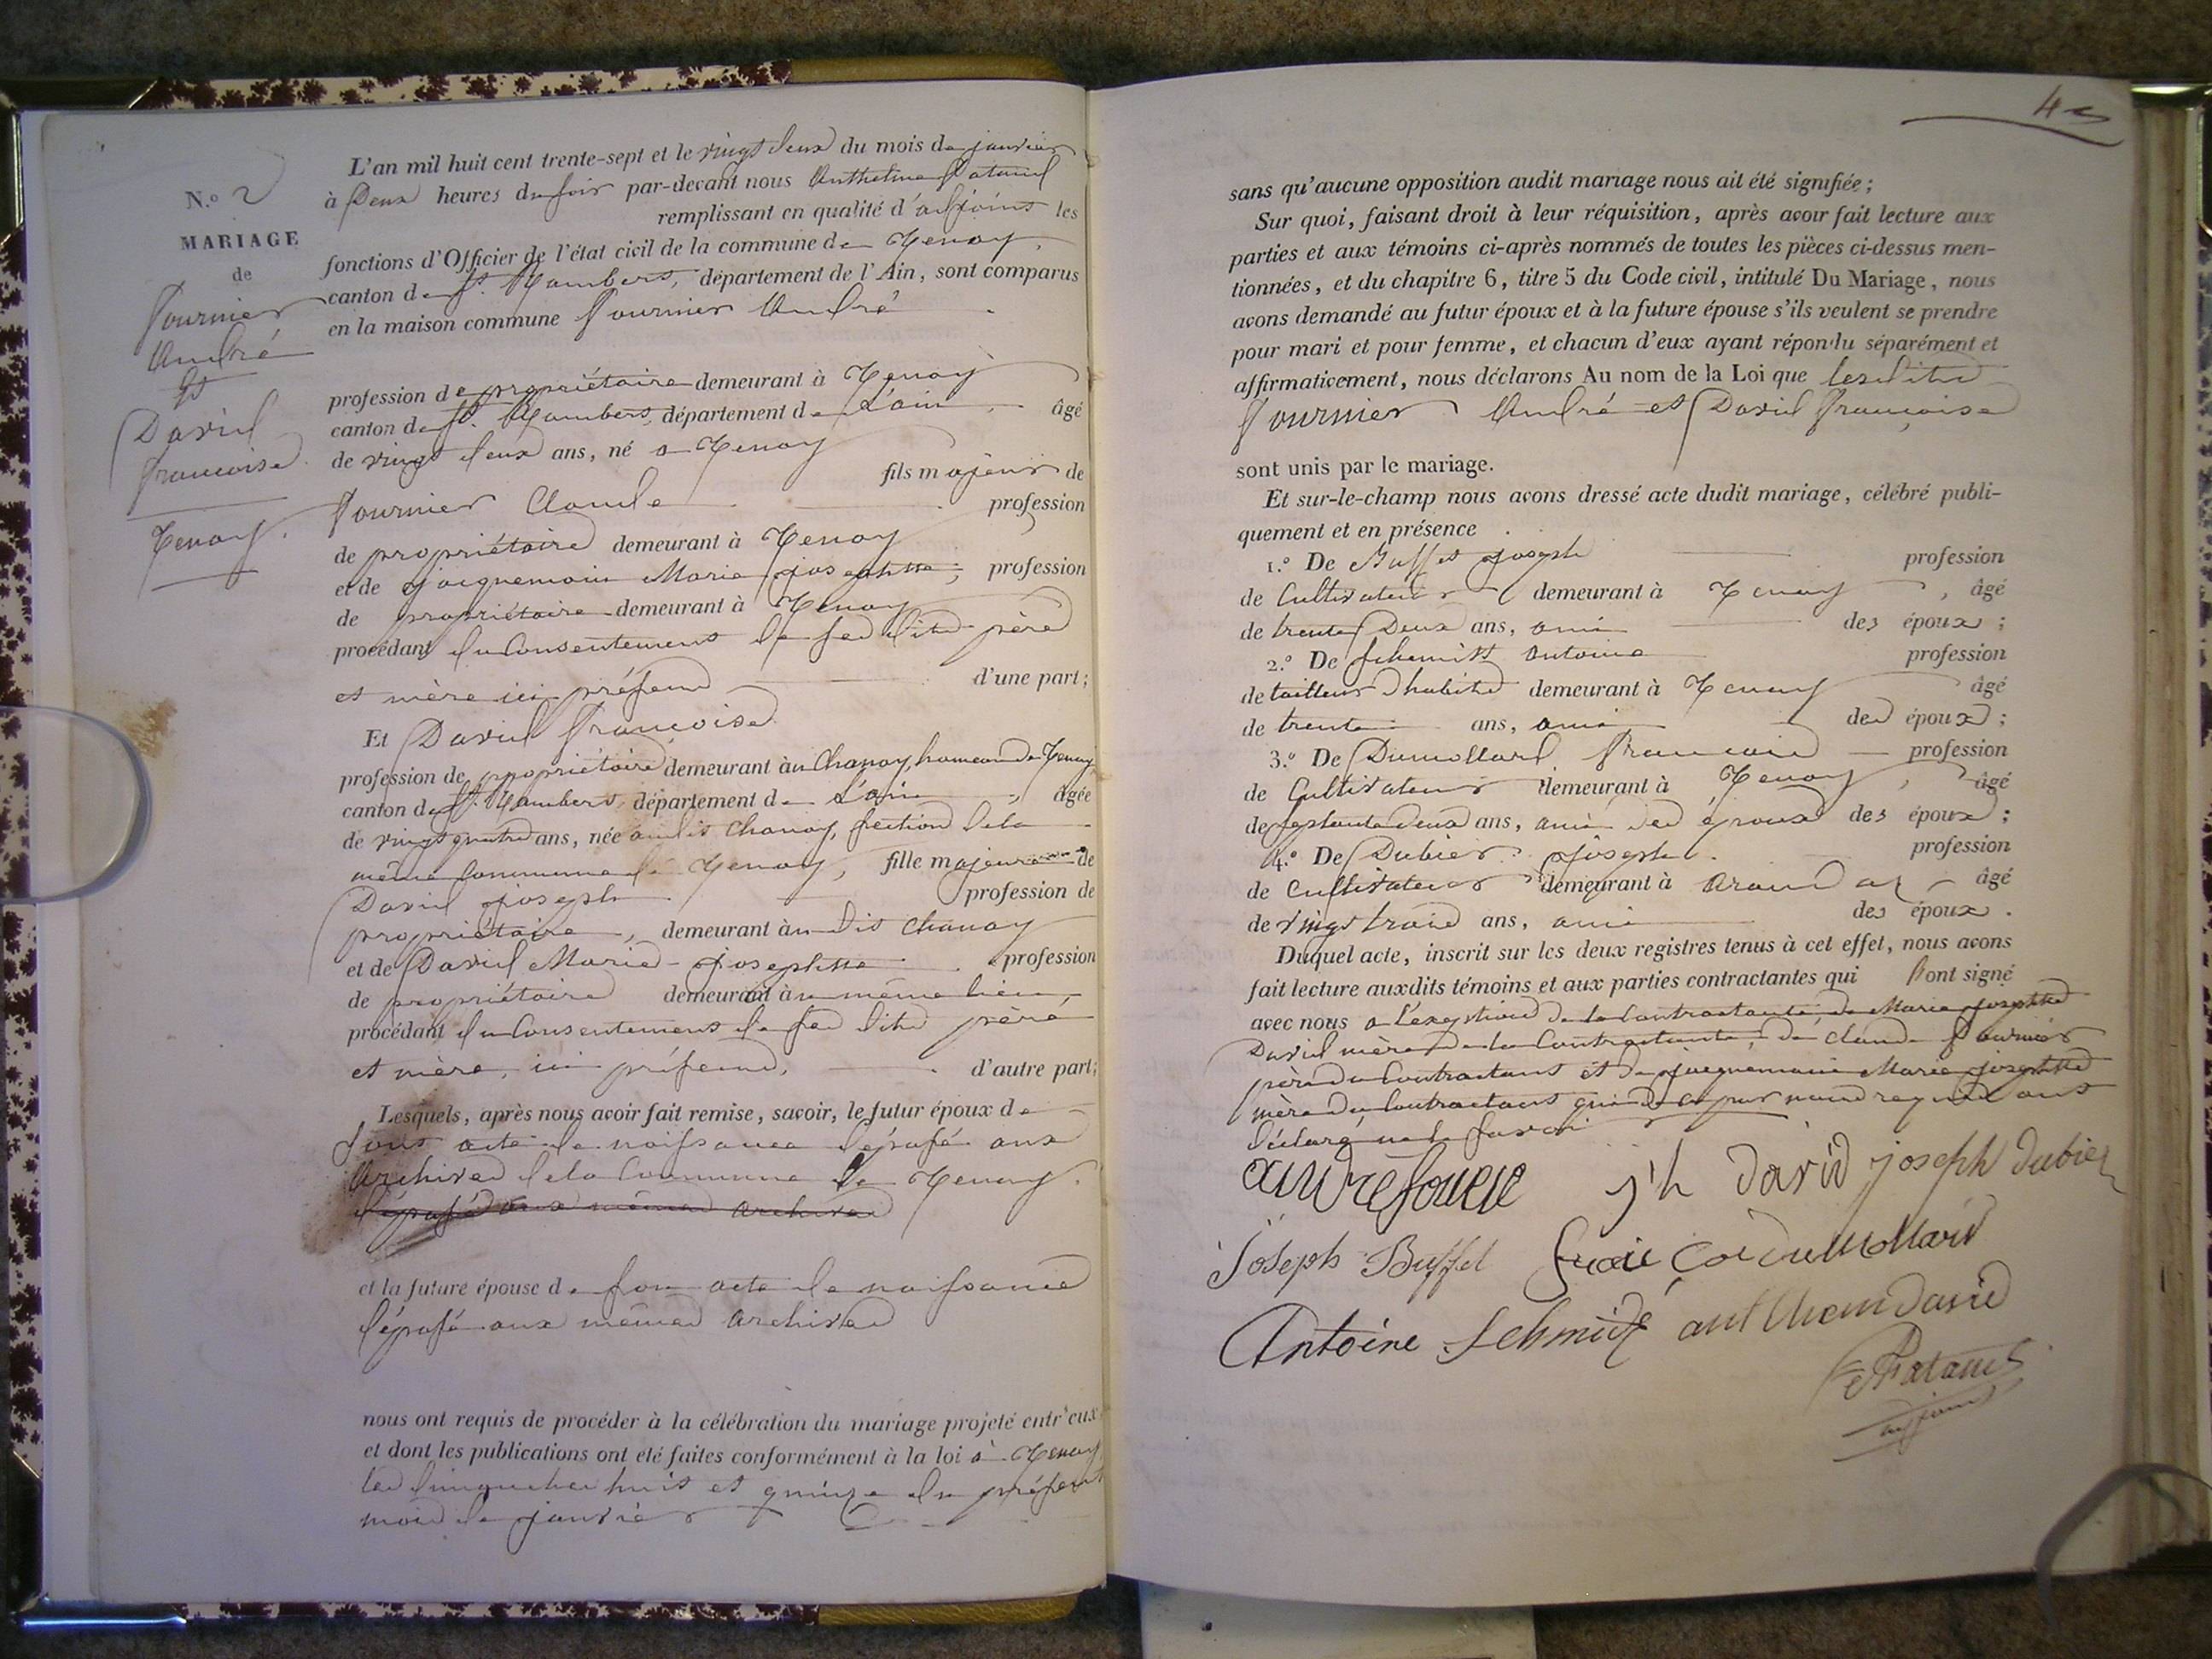 N.o 2
MARIAGE
de
Fournier
André
Et
David
françoise
Tenay.
L'an mil huit cent trente-sept et le vingt deux du mois de janvier
à Deux heures du soir par-devant nous Anthelme
remplissant en qualité d'adjoint les
fonctions d'Officier de l'état civil de la commune de Tenay,
canton de St. Rambert, département de l'Ain, sont comparus
en la maison commune Fournier André
profession de propriétaire demeurant à Tenay
canton de St. Rambert, département de L'ain, âgé
de vingt deux ans, né a Tenay
fils majeur de
Fournier Claude profession
de propriétaire demeurant à Tenay
et de jacquemain Marie josephtte, profession
de propriétaire demeurant à Tenay
procédant du Consentement de ses dits père
et mère ici présens d'une part;
Et David françoise
profession de propriétaire demeurant àu Chanay, hameau de Tenay
canton de St. Rambert, département de L'ain, âgée
de vingt quatre ans, née audit Chanay, section de la
même Commune de Tenay, fille majeure de
David joseph profession de
propriétaire, demeurant àu dit Chanay
et de David Marie-josephtte profession
de propriétaire demeurant àu même lieu,
procédant du Consentement de ses dits père
et mère, ici présens, d'autre part;
Lesquels, après nous avoir fait remise, savoir, le futur époux de
sont acte de naissance déposé aux
Archives de la Commune de Tenay.
déposé aux mêmes archives
et la future épouse de son acte de naissance
déposé aux mêmes archives
nous ont requis de procéder à la célébration du mariage projeté entr'eux
et dont les publications ont été faites conformément à la loi à Tenay
les dimanches huit et quinze du présent
mois de janvier
4
sans qu'aucune opposition audit mariage nous ait été signifiée;
Sur quoi, faisant droit à leur réquisition, après avoir fait lecture aux
parties et aux témoins ci-après nommés de toutes les pièces ci-dessus men-
tionnées, et du chapitre 6, titre 5 du Code civil, intitulé Du Mariage, nous
avons demandé au futur époux et à la future épouse s'ils veulent se prendre
pour mari et pour femme, et chacun d'eux ayant répondu séparément et
affirmativement, nous déclarons Au nom de la Loi que lesdits
Fournier André et David françoise
sont unis par le mariage.
Et sur-le-champ nous avons dressé acte dudit mariage, célébré publi-
quement et en présence
1.o De Buffet joseph profession
de Cultivateur demeurant à Tenay, âgé
de trente Deux ans, ami des époux;
2.o De Schmitt antoine profession
de tailleur d'habits demeurant à Tenay âgé
de trente ans, ami des époux;
3.o De Dumollard françois profession
de Cultivateur demeurant à Tenay, âgé
de septante deux ans, ami des époux des époux;
4.o De Dubier joseph profession
de Cultivateur demeurant à Arandaz âgé
de vingt trois ans, ami des époux.
Duquel acte, inscrit sur les deux registres tenus à cet effet, nous avons
fait lecture auxdits témoins et aux parties contractantes qui l'ont signé
avec nous a l'exeption de la Contractante, de Marie josephtte
David mère de la Contractante, de claude Fournier
père du Contractant et de jacquemain Marie josephtte
mère du Contractant qui de ce par nous requis ont
déclaré ne le savoir
j'h David joseph dubier
joseph Buffet
Antoine Schmidt anthem david
adjoint